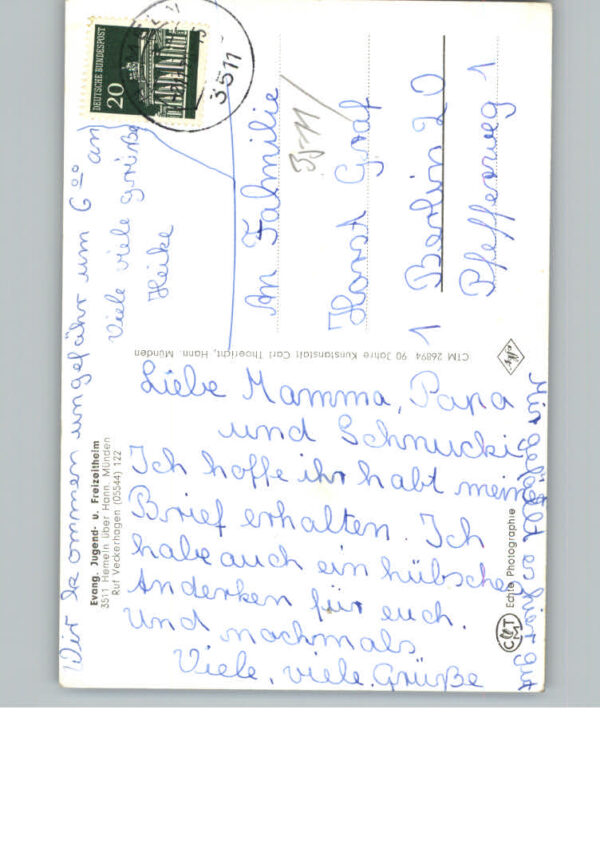 Liebe Mamma, Papa
und Schnucki,
Ich hoffe ihr habt meinen
Brief erhalten. Ich
habe auch ein hübsches
Anderken für euch.
Und nochmals
Viele, viele Grüße
Mir gefällt es hier gut
Wir kommen ungefähr um 6 00 an
Viele viele grüße
Heike
An Fahmilie
Horst Graf
1 Berlin 20
Pfefferweg 1
35-11
DEUTSCHE BUNDESPOST
20
3511
Evang. Jugend- u. Freizeitheim
3511 Hemeln über Hann. Münden
Ruf Veckerhagen (05544) 122
CTM 26894 90 Jahre Kunstanstalt Carl Thoericht, Hann. Münden
CTM
Echte Photographie